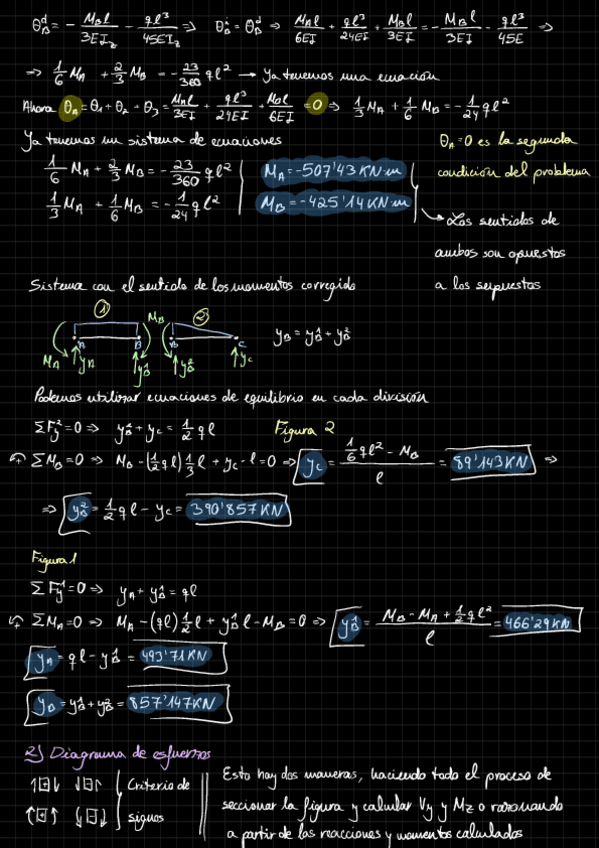 θ_B^d = - M_B l / 3EI_z - q l³ / 45EI_z ⇒ θ_B^i = θ_B^d ⇒ M_A l / 6EI + q l³ / 24EI + M_B l / 3EI = - M_B l / 3EI - q l³ / 45E ⇒
⇒ 1/6 M_A + 2/3 M_B = - 23/360 q l² → Ya tenemos una ecuación
Ahora θ_A = θ_1 + θ_2 + θ_3 = M_A l / 3EI + q l³ / 24EI + M_B l / 6EI = 0 ⇒ 1/3 M_A + 1/6 M_B = - 1/24 q l²
Ya tenemos un sistema de ecuaciones
θ_A = 0 es la segunda
condición del problema
1/6 M_A + 2/3 M_B = - 23/360 q l²
M_A = -507'43 KN·m
1/3 M_A + 1/6 M_B = - 1/24 q l²
M_B = -425'14 KN·m
Los sentidos de
ambos son opuestos
a los supuestos
Sistema con el sentido de los momentos corregido
1
M_B
2
A
B
B
C
M_A
y_A
y_B^1
y_B^2
y_C
y_B = y_B^1 + y_B^2
Podemos utilizar ecuaciones de equilibrio en cada división
ΣF_y^2 = 0 ⇒ y_B^2 + y_C = 1/2 q l
Figura 2
ΣM_B = 0 ⇒ M_B - (1/2 q l) 1/3 l + y_C · l = 0 ⇒ y_C = (1/6 q l² - M_B) / l = 89'143 KN ⇒
⇒ y_B^2 = 1/2 q l - y_C = 390'857 KN
Figura 1
ΣF_y^1 = 0 ⇒ y_A + y_B^1 = q l
ΣM_A = 0 ⇒ M_A - (q l) 1/2 l + y_B^1 l - M_B = 0 ⇒ y_B^1 = (M_B - M_A + 1/2 q l²) / l = 466'29 KN
y_A = q l - y_B^1 = 493'71 KN
y_B = y_B^1 + y_B^2 = 857'147 KN
2) Diagrama de esfuerzos
Criterio de
signos
Esto hay dos maneras, haciendo todo el proceso de
seccionar la figura y calcular V_y y M_z o razonando
a partir de las reacciones y momentos calculados